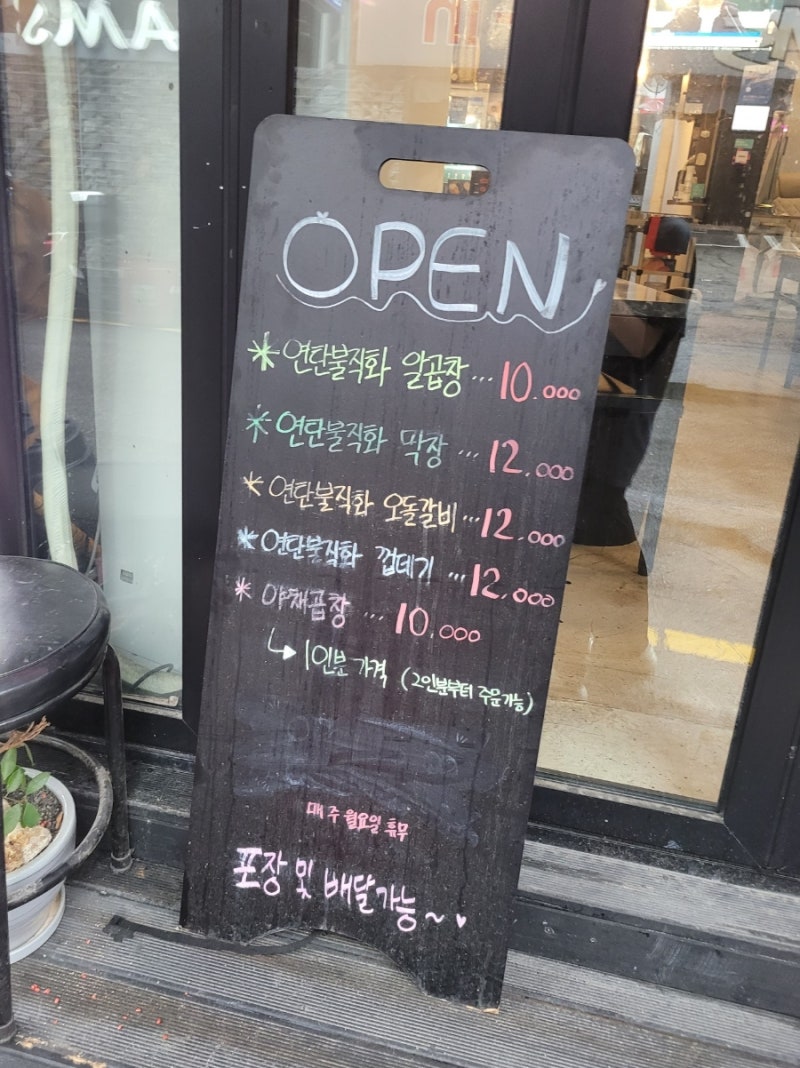 OPEN
* 연탄불직화 알곱창 ... 10.000
* 연탄불직화 막장 ... 12.000
* 연탄불직화 오돌갈비 ... 12.000
* 연탄불직화 껍데기 ... 12.000
* 야채곱창 ... 10.000
1인분 가격 (2인분부터 주문가능)
매주 월요일 휴무
포장 및 배달가능~♥